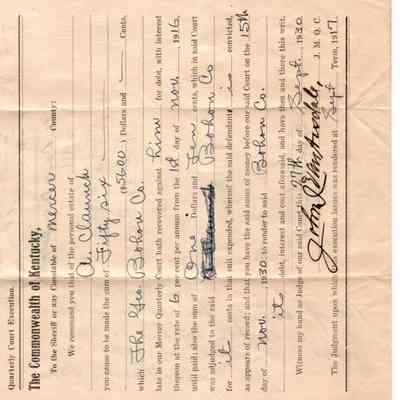 Quarterly Court Execution.
The Commonwealth of Kentucky,
To the Sheriff or any Constable of Mercer County:
We command you that of the personal estate of
A. Claunch
you cause to be made the sum of Fifty six
($5600) Dollars and Cents,
which The Geo. Bohon Co.
late in our Mercer Quarterly Court hath recovered against him for debt, with interest
thereon at the rate of 6 per cent per annum from the 1st day of Nov. 1916
until paid; also the sum of One Dollars and Ten cents, which in said Court
was adjudged to the said Bohon Co
for it costs in that suit expended, whereof the said defendant is convicted,
as appears of record; and that you have the said sums of money before our said Court on the 15th
day of Nov. 1930 to render to said Bohon Co.
it debt, interest and cost aforesaid, and have then and there this writ.
Witness my hand as Judge of our said Court this 27th day of Sept. 1930
J. M. Q. C.
The Judgment upon which execution issues was rendered at Sept Term, 1917